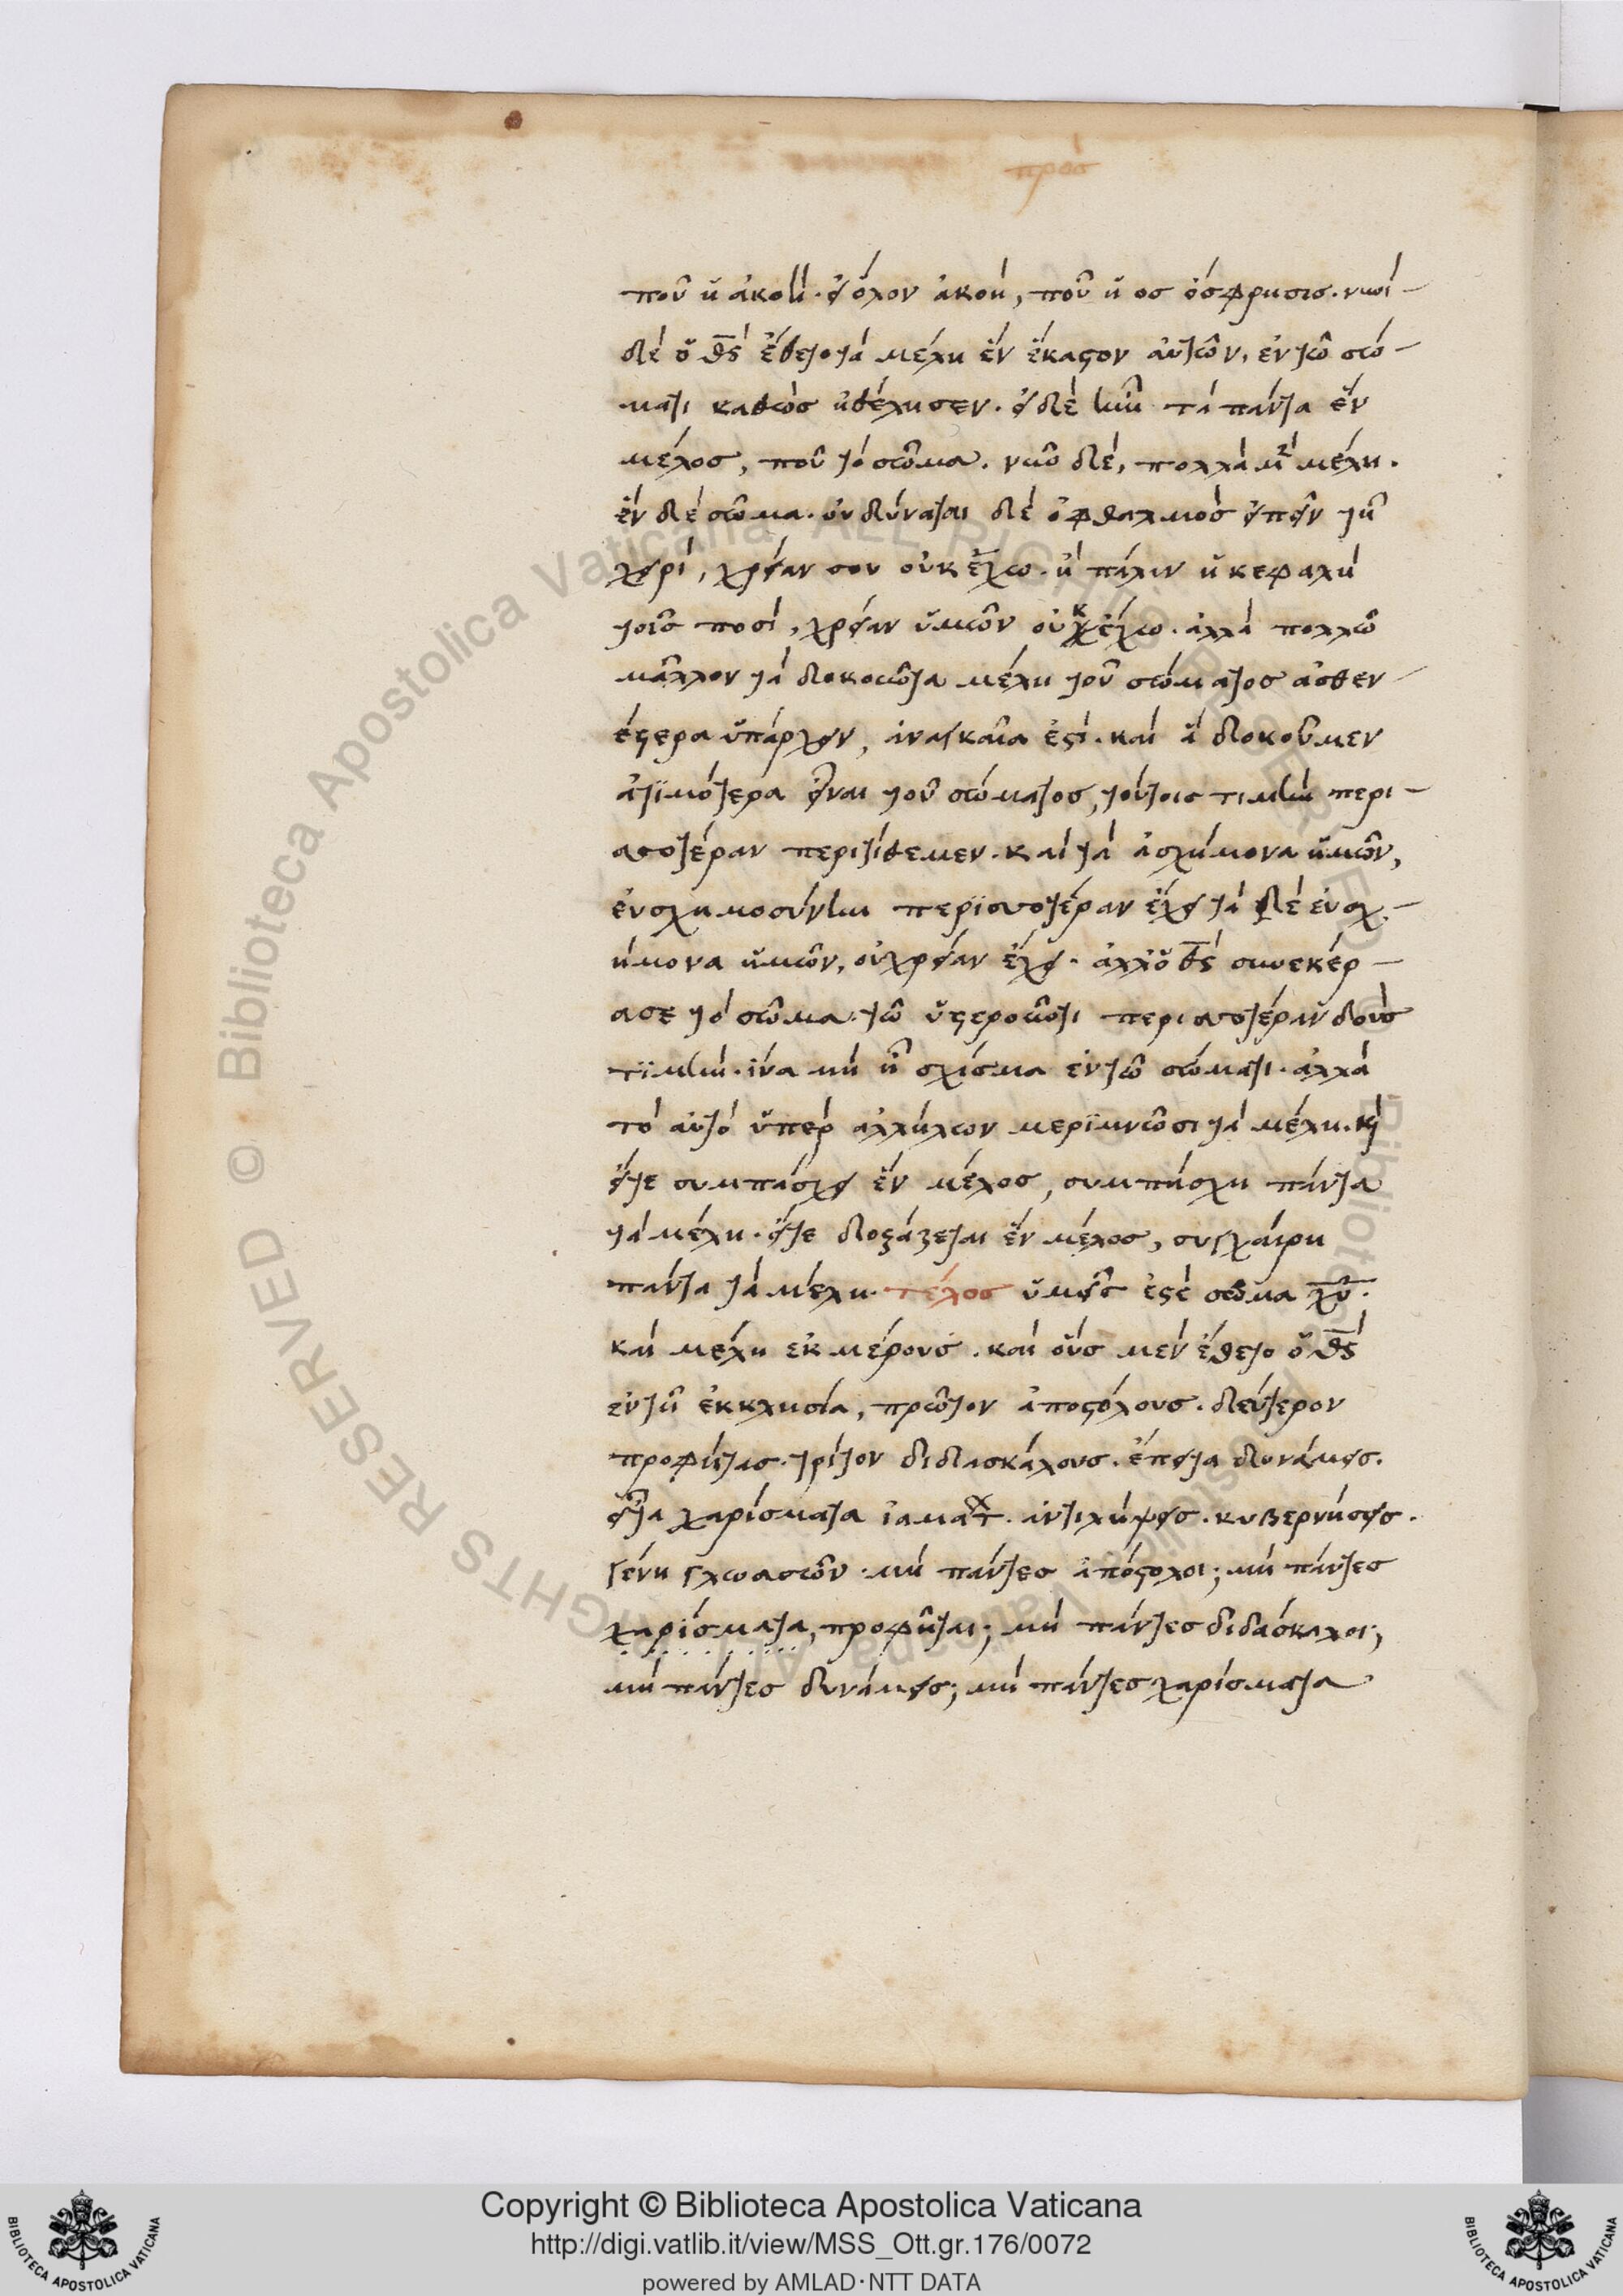 πρὸσ
ποῦ ἡ ἀκοὴ. εἰ ὅλον ἀκοὴ, ποῦ ἡ οσ ὄσφρησισ. νυνὶ
δὲ ὁ θς ἔθετο τὰ μέλη ἓν ἕκαστον αὐτῶν, ἐν τῶ σώ
ματι καθὼσ ἠθέλησεν. εἰ δὲ ἦν τὰ πάντα ἓν
μέλοσ, ποῦ τὸ σῶμα. νῦν δὲ, πολλὰ μὲν μέλη.
ἓν δὲ σῶμα. οὐ δύναται δὲ ὀφθαλμὸσ εἰπεῖν τῆ
χειρὶ, χρείαν σου οὐκ ἔχω. ἢ πάλιν ἡ κεφαλὴ
τοῖσ ποσὶ, χρείαν ὑμῶν οὐκ ἔχω. ἀλλὰ πολλῶ
μᾶλλον τὰ δοκοῦντα μέλη τοῦ σώματοσ ἀσθεν
έστερα ὑπάρχειν, ἀναγκαῖα ἐστὶ. καὶ ἃ δοκοῦμεν
ἀτιμότερα εἶναι τοῦ σώματοσ, τούτοισ τιμὴν περι
σσοτέραν περιτίθεμεν. καὶ τὰ ἀσχήμονα ἡμῶν,
εὐσχημοσύνην περϊσσοτέραν ἔχει τὰ δὲ εὐσχ
ήμονα ἡμῶν, οὐ χρείαν ἔχει. ἀλλ' ὁ θς συνεκέρ
ασε τὸ σῶμα. τῶ ὑστεροῦντι περισσοτέραν δοὺσ
τϊμὴν. ἵνα μὴ ἦ σχίσμα ἐν τῶ σώματι. ἀλλὰ
τὸ αὐτὸ ὑπὲρ ἀλλήλων μερϊμνῶσι τὰ μέλη. κὶ
εἴτε συμπάσχει ἓν μέλοσ, συμπάσχη πάντα
τὰ μέλη. εἴτε δοξάζεται ἓν μέλοσ, συγχαίρη
πάντα τὰ μέλη. τέλοσ ὑμεῖσ ἐστὲ σῶμα χυ.
καὶ μέλη ἐκ μέρουσ. καὶ οὓσ μὲν ἔθετο ὁ θς
ἐν τῆ ἐκκλησία, πρῶτον ἀποστόλουσ. δεύτερον
προφήτασ. τρίτον διδασκάλουσ. ἔπειτα δυνάμεισ.
εἶτα χαρίσματα ἰαμάτ. ἀντιλήψεισ. κυβερνήσεισ.
γένη γλωσσῶν. μὴ πάντεσ ἀπόστολοι; μὴ πάντεσ
χαρίσματα, προφῆται; μὴ πάντεσ διδάσκαλοι;
μὴ πάντεσ δυνάμεισ; μὴ πάντεσ χαρίσματα
Copyright © Biblioteca Apostolica Vaticana
http://digi.vatlib.it/view/MSS_Ott.gr.176/0072
powered by AMLAD·NTT DATA
BIBLIOTECA APOSTOLICA VATICANA
BIBLIOTECA APOSTOLICA VATICANA
© Biblioteca Apostolica Vaticana ALL RIGHTS RESERVED